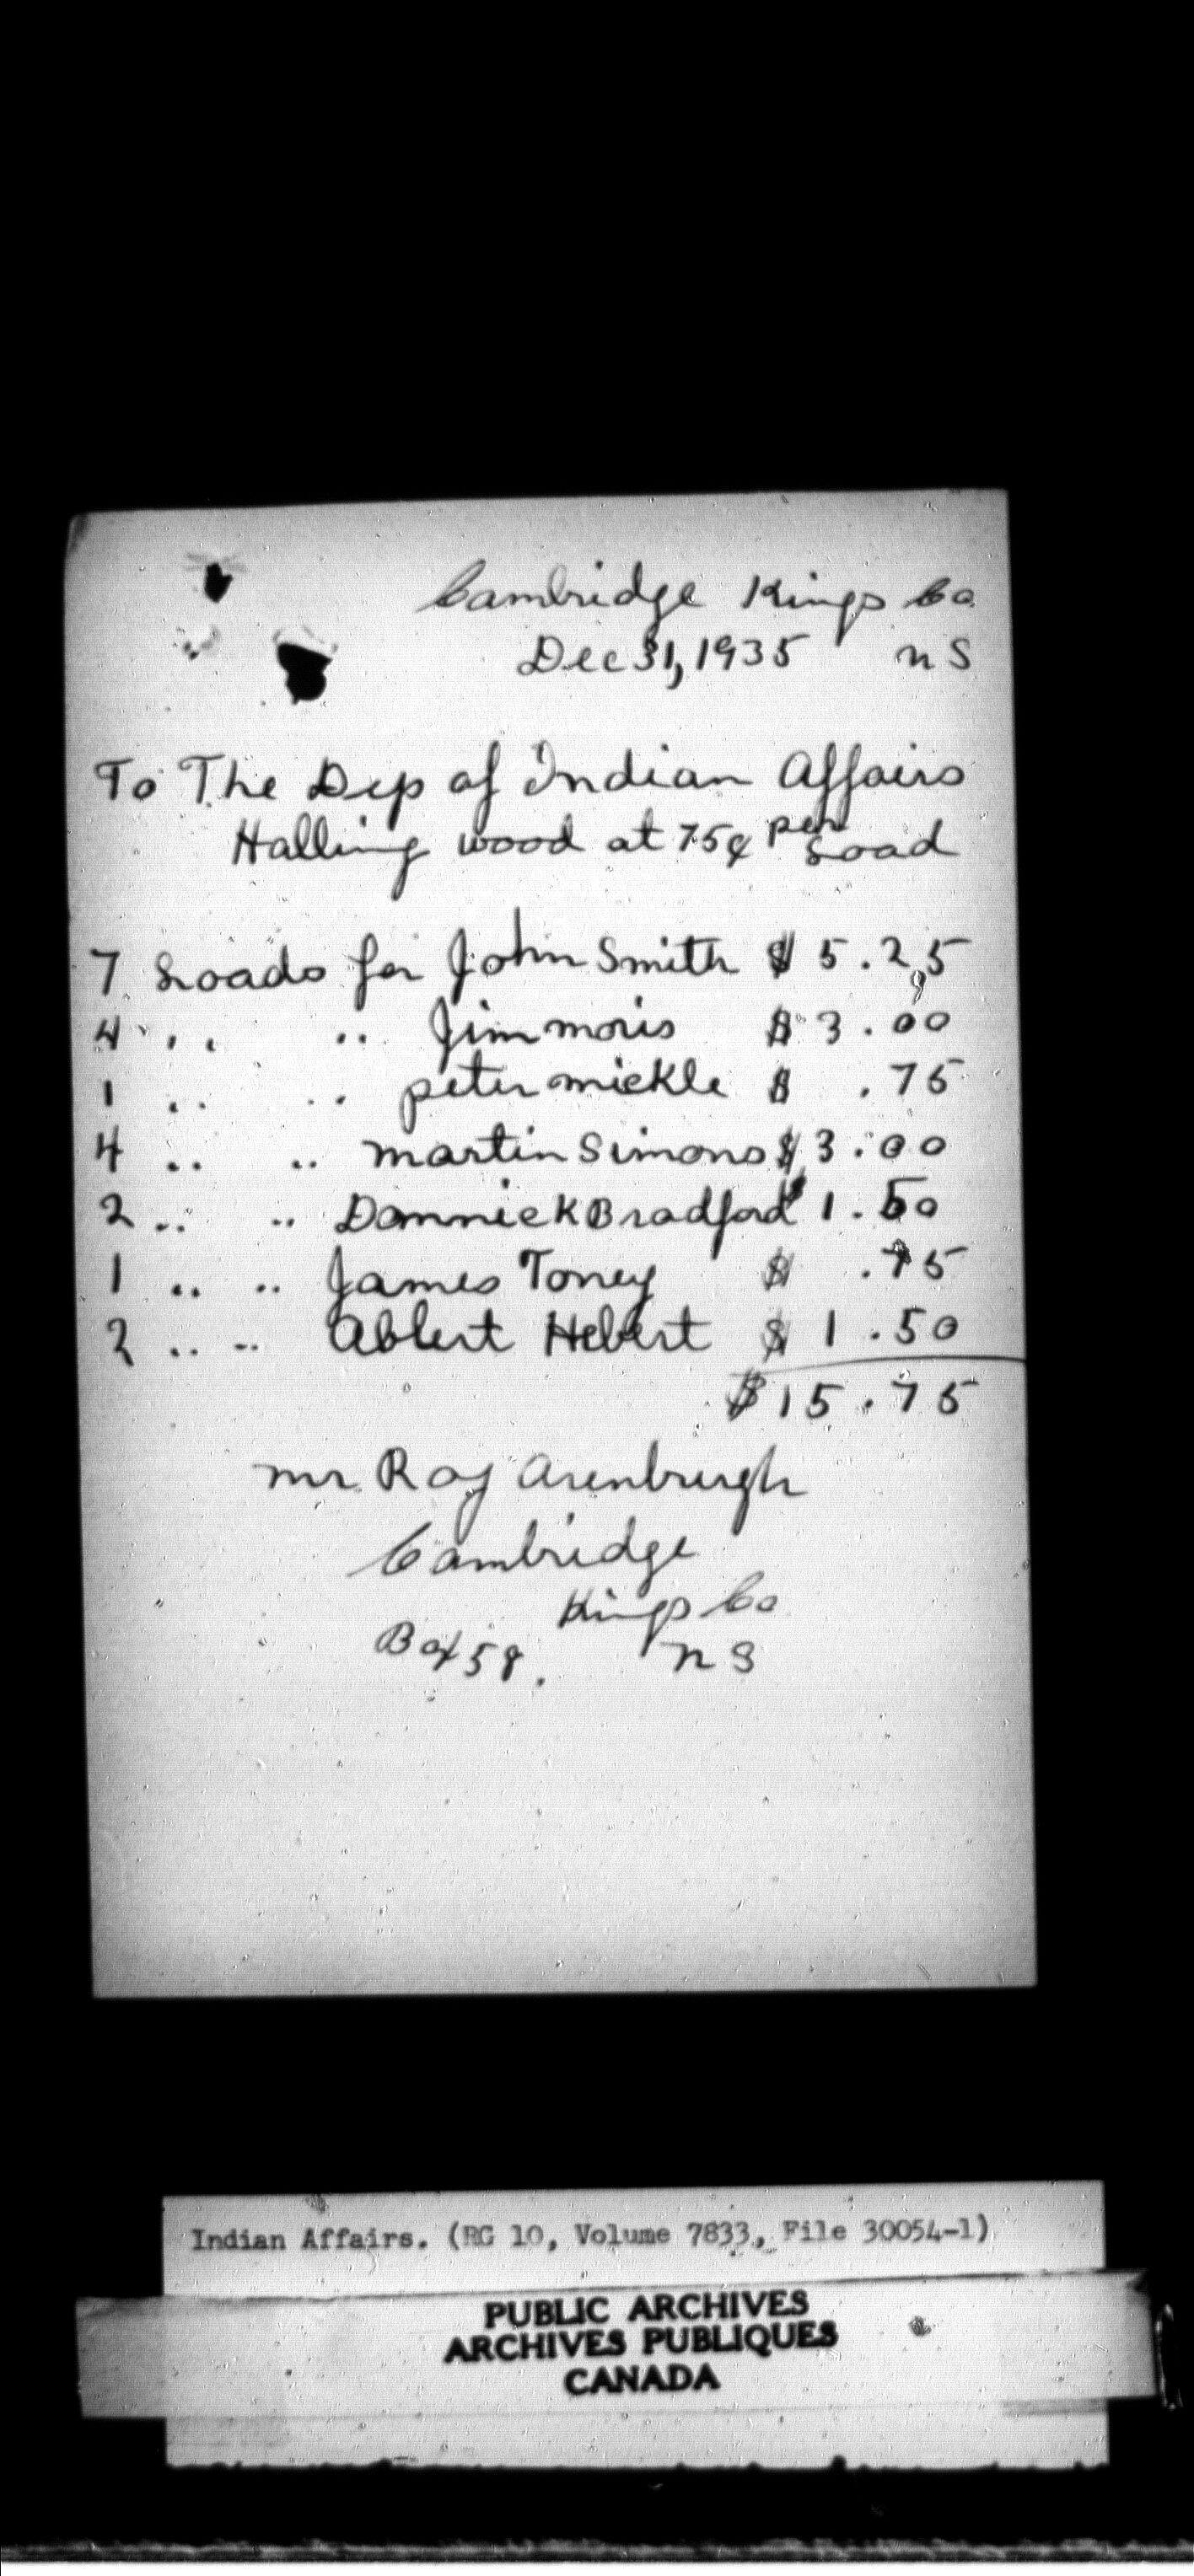 Cambridge Kings Co
Dec 31, 1935 n S
To The Dep of Indian Affairs
Halling wood at 75¢ per Load
7 Loads for John Smith $ 5.25
4 .. .. Jim moris $ 3.00
1 .. .. peter mickle $ .75
4 .. .. martin Simons $ 3.00
2 .. .. Domnick Bradford $ 1.50
1 .. .. James Toney $ .75
2 .. .. Ablert Hebert $ 1.50
$ 15.75
mr Roy Arenburgh
Cambridge
Kings Co
Box 58. n S
Indian Affairs. (RG 10, Volume 7833, File 30054-1)
PUBLIC ARCHIVES
ARCHIVES PUBLIQUES
CANADA